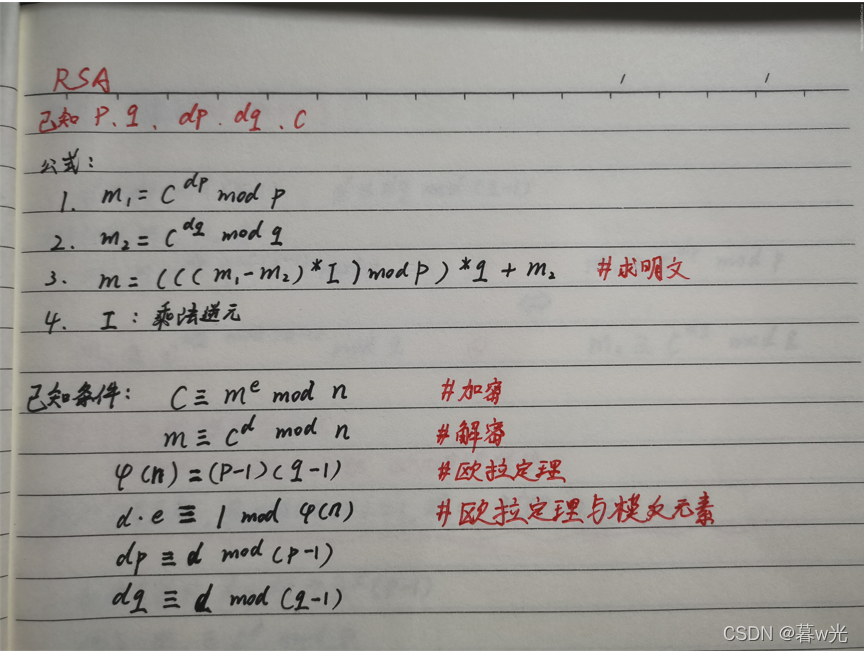 RSA
已知 p、q、dp、dq、c
公式：
1. m₁ = c^dp mod p
2. m₂ = c^dq mod q
3. m = (((m₁-m₂)*I) mod p)*q + m₂ #求明文
4. I：乘法逆元
已知条件： c ≡ m^e mod n #加密
m ≡ c^d mod n #解密
φ(n) = (p-1)(q-1) #欧拉定理
d·e ≡ 1 mod φ(n) #欧拉定理与模反元素
dp ≡ d mod (p-1)
dq ≡ d mod (q-1)
CSDN @暮w光